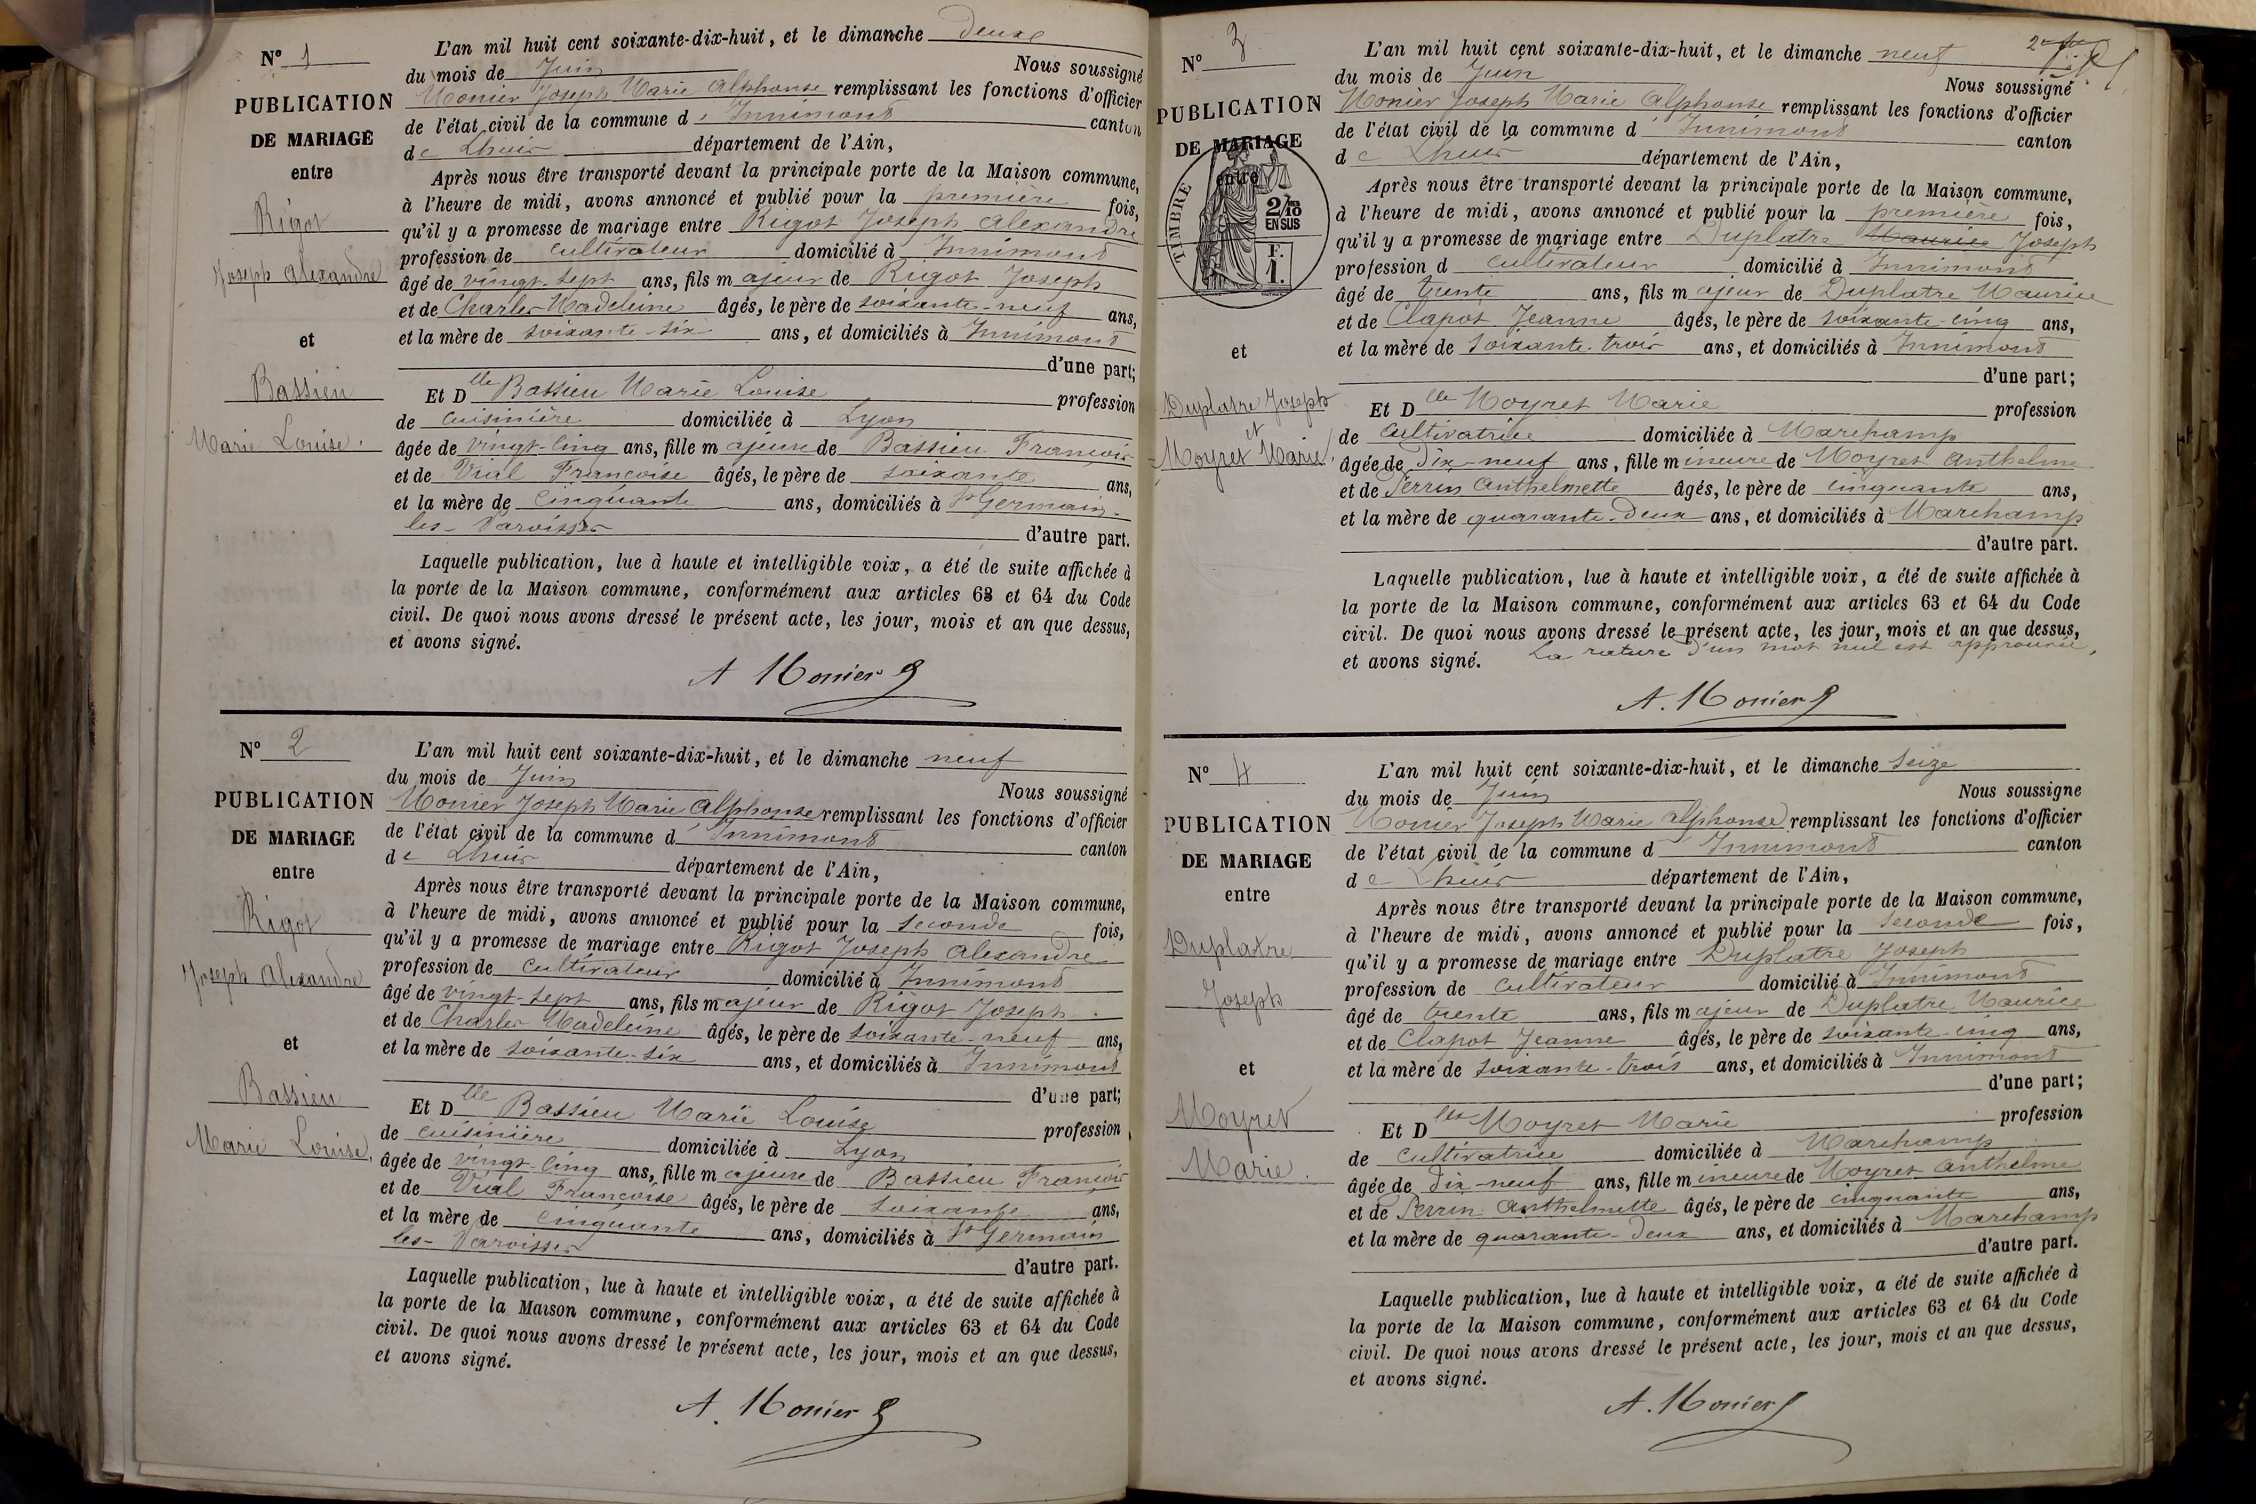 N° 1
PUBLICATION
DE MARIAGE
entre
Rigot
Joseph Alexandre
et
Bassieu
Marie Louise.
L'an mil huit cent soixante-dix-huit, et le dimanche deux
du mois de Juin Nous soussigné
Monier Joseph Marie Alphonse remplissant les fonctions d'officier
de l'état civil de la commune d'Innimont canton
de Lhuis département de l'Ain,
Après nous être transporté devant la principale porte de la Maison commune,
à l'heure de midi, avons annoncé et publié pour la première fois,
qu'il y a promesse de mariage entre Rigot Joseph Alexandre
profession de cultivateur domicilié à Innimont
âgé de vingt-sept ans, fils majeur de Rigot Joseph
et de Charles Madeleine âgés, le père de soixante-neuf ans,
et la mère de soixante-six ans, et domiciliés à Innimont
d'une part;
Et Dlle Bassieu Marie Louise profession
de cuisinière domiciliée à Lyon
âgée de vingt-cinq ans, fille majeure de Bassieu François
et de Vial Françoise âgés, le père de soixante ans,
et la mère de cinquante ans, domiciliés à St Germain-
les-Paroisses d'autre part.
Laquelle publication, lue à haute et intelligible voix, a été de suite affichée à
la porte de la Maison commune, conformément aux articles 63 et 64 du Code
civil. De quoi nous avons dressé le présent acte, les jour, mois et an que dessus,
et avons signé.
A Monier
N° 2
PUBLICATION
DE MARIAGE
entre
Rigot
Joseph Alexandre
et
Bassieu
Marie Louise.
L'an mil huit cent soixante-dix-huit, et le dimanche neuf
du mois de Juin Nous soussigné
Monier Joseph Marie Alphonse remplissant les fonctions d'officier
de l'état civil de la commune d'Innimont canton
de Lhuis département de l'Ain,
Après nous être transporté devant la principale porte de la Maison commune,
à l'heure de midi, avons annoncé et publié pour la seconde fois,
qu'il y a promesse de mariage entre Rigot Joseph Alexandre
profession de cultivateur domicilié à Innimont
âgé de vingt-sept ans, fils majeur de Rigot Joseph
et de Charles Madeleine âgés, le père de soixante-neuf ans,
et la mère de soixante-six ans, et domiciliés à Innimont
d'une part;
Et Dlle Bassieu Marie Louise profession
de cuisinière domiciliée à Lyon
âgée de vingt-cinq ans, fille majeure de Bassieu François
et de Vial Françoise âgés, le père de soixante ans,
et la mère de cinquante ans, domiciliés à St Germain
les-Paroisses d'autre part.
Laquelle publication, lue à haute et intelligible voix, a été de suite affichée à
la porte de la Maison commune, conformément aux articles 63 et 64 du Code
civil. De quoi nous avons dressé le présent acte, les jour, mois et an que dessus,
et avons signé.
A. Monier
N° 3
PUBLICATION
DE MARIAGE
entre
TIMBRE
2/10 EN SUS
F. 1.
et
Duplatre Joseph
et
Moyret Marie.
L'an mil huit cent soixante-dix-huit, et le dimanche neuf
du mois de Juin Nous soussigné
Monier Joseph Marie Alphonse remplissant les fonctions d'officier
de l'état civil de la commune d'Innimont canton
de Lhuis département de l'Ain,
Après nous être transporté devant la principale porte de la Maison commune,
à l'heure de midi, avons annoncé et publié pour la première fois,
qu'il y a promesse de mariage entre Duplatre Maurice Joseph
profession d cultivateur domicilié à Innimont
âgé de trente ans, fils majeur de Duplatre Maurice
et de Clapot Jeanne âgés, le père de soixante-cinq ans,
et la mère de soixante-trois ans, et domiciliés à Innimont
d'une part;
Et Dlle Moyret Marie profession
de cultivatrice domiciliée à Marchamp
âgée de Dix-neuf ans, fille mineure de Moyret Anthelme
et de Perrin Anthelmette âgés, le père de cinquante ans,
et la mère de quarante-deux ans, et domiciliés à Marchamp
d'autre part.
Laquelle publication, lue à haute et intelligible voix, a été de suite affichée à
la porte de la Maison commune, conformément aux articles 63 et 64 du Code
civil. De quoi nous avons dressé le présent acte, les jour, mois et an que dessus,
et avons signé. La rature d'un mot nul est approuvée.
A. Monier
N° 4
PUBLICATION
DE MARIAGE
entre
Duplatre
Joseph
et
Moyret
Marie.
L'an mil huit cent soixante-dix-huit, et le dimanche seize
du mois de Juin Nous soussigne
Monier Joseph Marie Alphonse remplissant les fonctions d'officier
de l'état civil de la commune d'Innimont canton
de Lhuis département de l'Ain,
Après nous être transporté devant la principale porte de la Maison commune,
à l'heure de midi, avons annoncé et publié pour la seconde fois,
qu'il y a promesse de mariage entre Duplatre Joseph
profession de cultivateur domicilié à Innimont
âgé de trente ans, fils majeur de Duplatre Maurice
et de Clapot Jeanne âgés, le père de soixante-cinq ans,
et la mère de soixante-trois ans, et domiciliés à Innimont
d'une part;
Et Dlle Moyret Marie profession
de cultivatrice domiciliée à Marchamp
âgée de dix-neuf ans, fille mineure de Moyret Anthelme
et de Perrin Anthelmette âgés, le père de cinquante ans,
et la mère de quarante-deux ans, et domiciliés à Marchamp
d'autre part.
Laquelle publication, lue à haute et intelligible voix, a été de suite affichée à
la porte de la Maison commune, conformément aux articles 63 et 64 du Code
civil. De quoi nous avons dressé le présent acte, les jour, mois et an que dessus,
et avons signé.
A. Monier